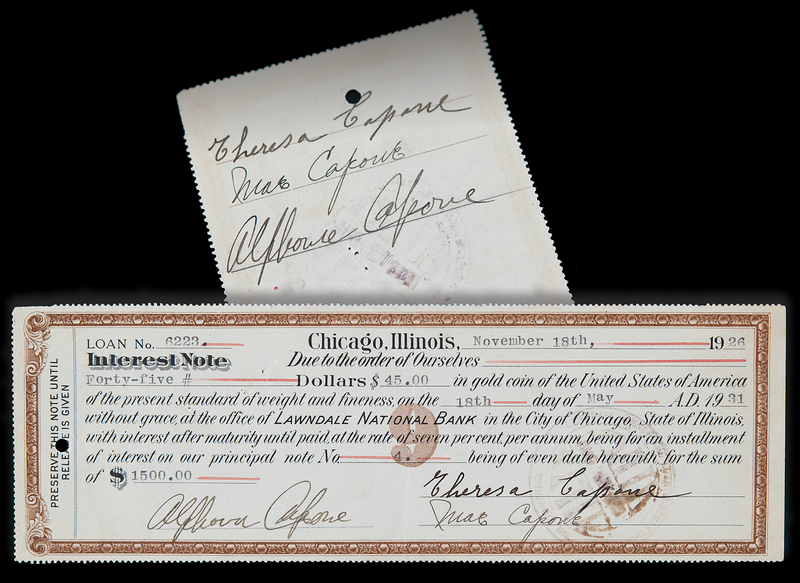 Theresa Capone
Mae Capone
Alphonse Capone
LOAN No. 6223.
Chicago, Illinois, November 18th, 1926
Interest Note
Due to the order of Ourselves
Forty-five # Dollars $ 45.00 in gold coin of the United States of America
of the present standard of weight and fineness, on the 18th day of May A.D. 1931
without grace, at the office of LAWNDALE NATIONAL BANK in the City of Chicago, State of Illinois,
with interest after maturity until paid, at the rate of seven per cent, per annum, being for an installment
of interest on our principal note No. 4. being of even date herewith for the sum
of $ 1500.00
PRESERVE THIS NOTE UNTIL
RELEASE IS GIVEN
Theresa Capone
Alphonse Capone
Mae Capone